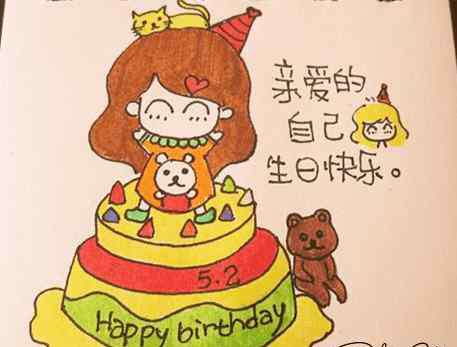 亲爱的
自己
生日快乐。
5.2
Happy birthday